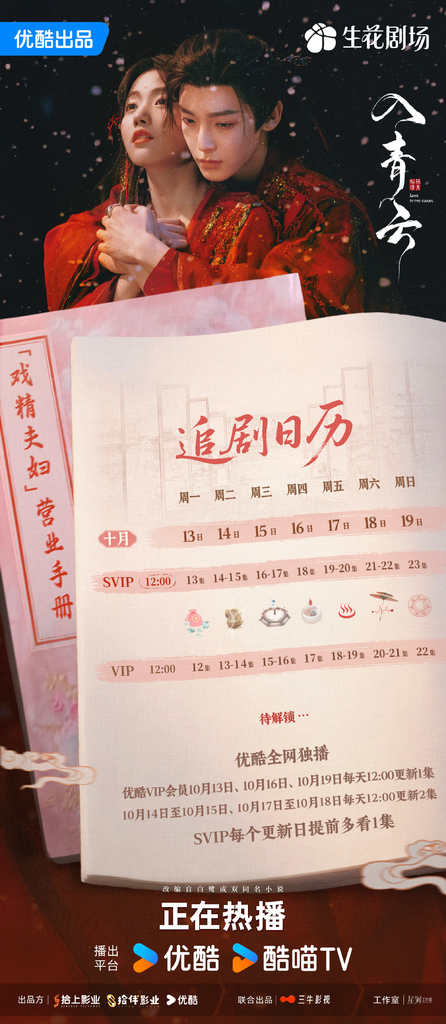 优酷出品
生花剧场
入青云
Love
IN THE CLOUDS
「戏精夫妇」营业手册
追剧日历
周一 周二 周三 周四 周五 周六 周日
十月 13日 14日 15日 16日 17日 18日 19日
SVIP 12:00 13集 14-15集 16-17集 18集 19-20集 21-22集 23集
VIP 12:00 12集 13-14集 15-16集 17集 18-19集 20-21集 22集
待解锁…
优酷全网独播
优酷VIP会员10月13日、10月16日、10月19日每天12:00更新1集
10月14日至10月15日、10月17日至10月18日每天12:00更新2集
SVIP每个更新日提前多看1集
改编自白鹭成双同名小说
正在热播
播出平台 优酷 酷喵TV
出品方 拾上影业 拾伴影业 优酷 联合出品 三牛影视 工作室